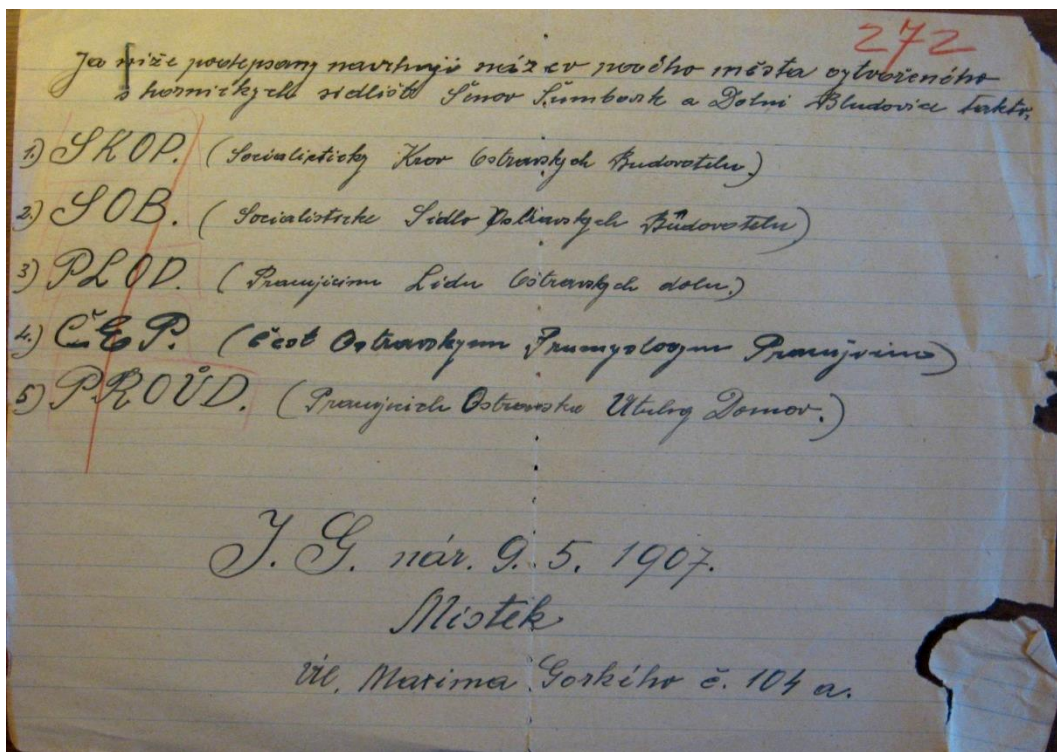 272
Ja níže podepsaný navrhuji název nového města vytvořeného
s hornických sidlišť Šenov Šumbark a Dolni Bludovice takto.
1.) SKOB. (Socialisticky Krov Ostravskych Budovatelu.)
2.) SOB. (Socialisticke Sidlo Ostravskych Budovatelu)
3) PLOD. (Pracujicimu Lidu Ostravskych dolu.)
4.) ČEP. (čest Ostravskym Prumyslovym Pracujicim)
5) PROÚD. (Pracujicich Ostravska Utulny Domov.)
J. G. nár. 9. 5. 1907.
Mistek
Ul. Maxima Gorkého č. 104 a.